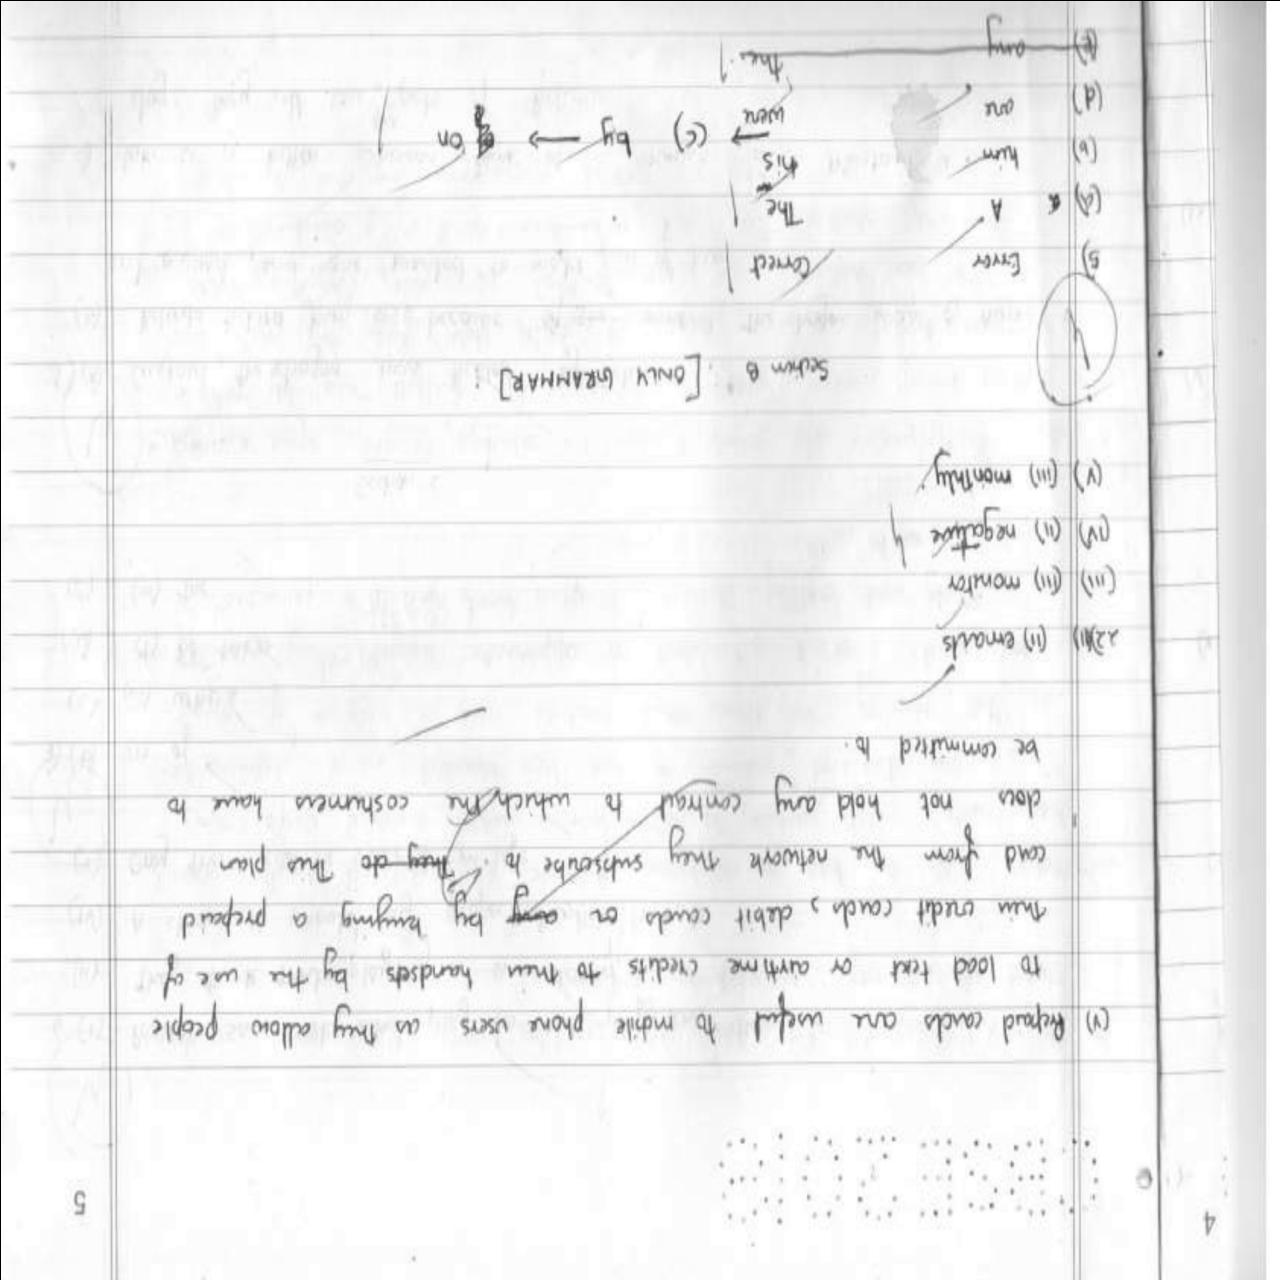 5
4
(v) Prepaid cards are useful to mobile phone users as they allow people
to load text or airtime credits to their handsets by the use of
their credit cards, debit cards or any by buying a prepaid
card from the network they subscribe to. They do This plan
does not hold any contract to which the costumers have to
be committed to.
(ii) emails
(iii) (iii) monitor
(iv) (ii) negative
(v) (iii) monthly
Section B [ONLY GRAMMAR] :
5) Error Correct
(A) A The
(b) him his
(c) by → on
(d) are were
(e) any the